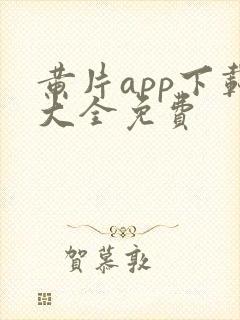 黄片app下载
大全免费
贺慕敦